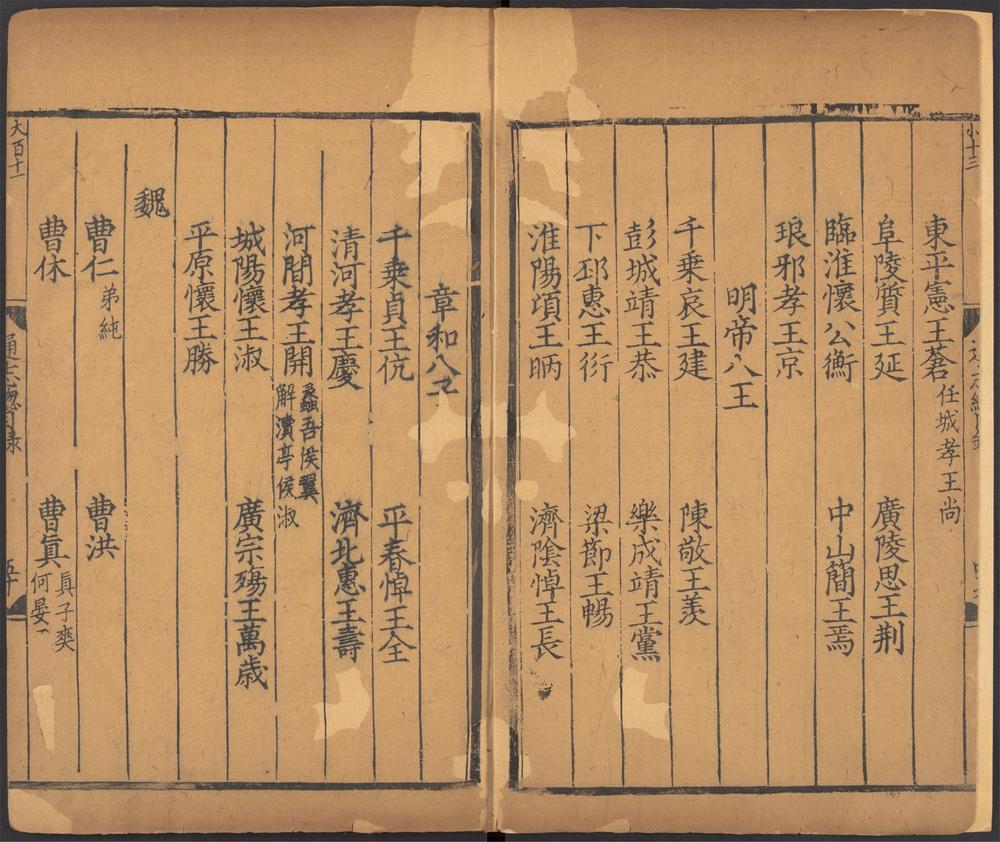 小十三
東平憲王蒼 任城孝王尚
阜陵質王延 廣陵思王荆
臨淮懷公衡 中山簡王焉
琅邪孝王京
明帝八王
千乗哀王建 陳敬王羡
彭城靖王恭 樂成靖王黨
下邳惠王衍 梁節王暢
淮陽頃王昞 濟隂悼王長
章和八王
千乗貞王伉 平春悼王全
清河孝王慶 濟北惠王壽
河間孝王開 蠡吾侯翼
解瀆亭侯淑
城陽懷王淑 廣宗殤王萬歳
平原懷王勝
魏
曹仁 弟純 曹洪
曹休 曹真 真子爽
何晏
大百十一
通志總目録
五十